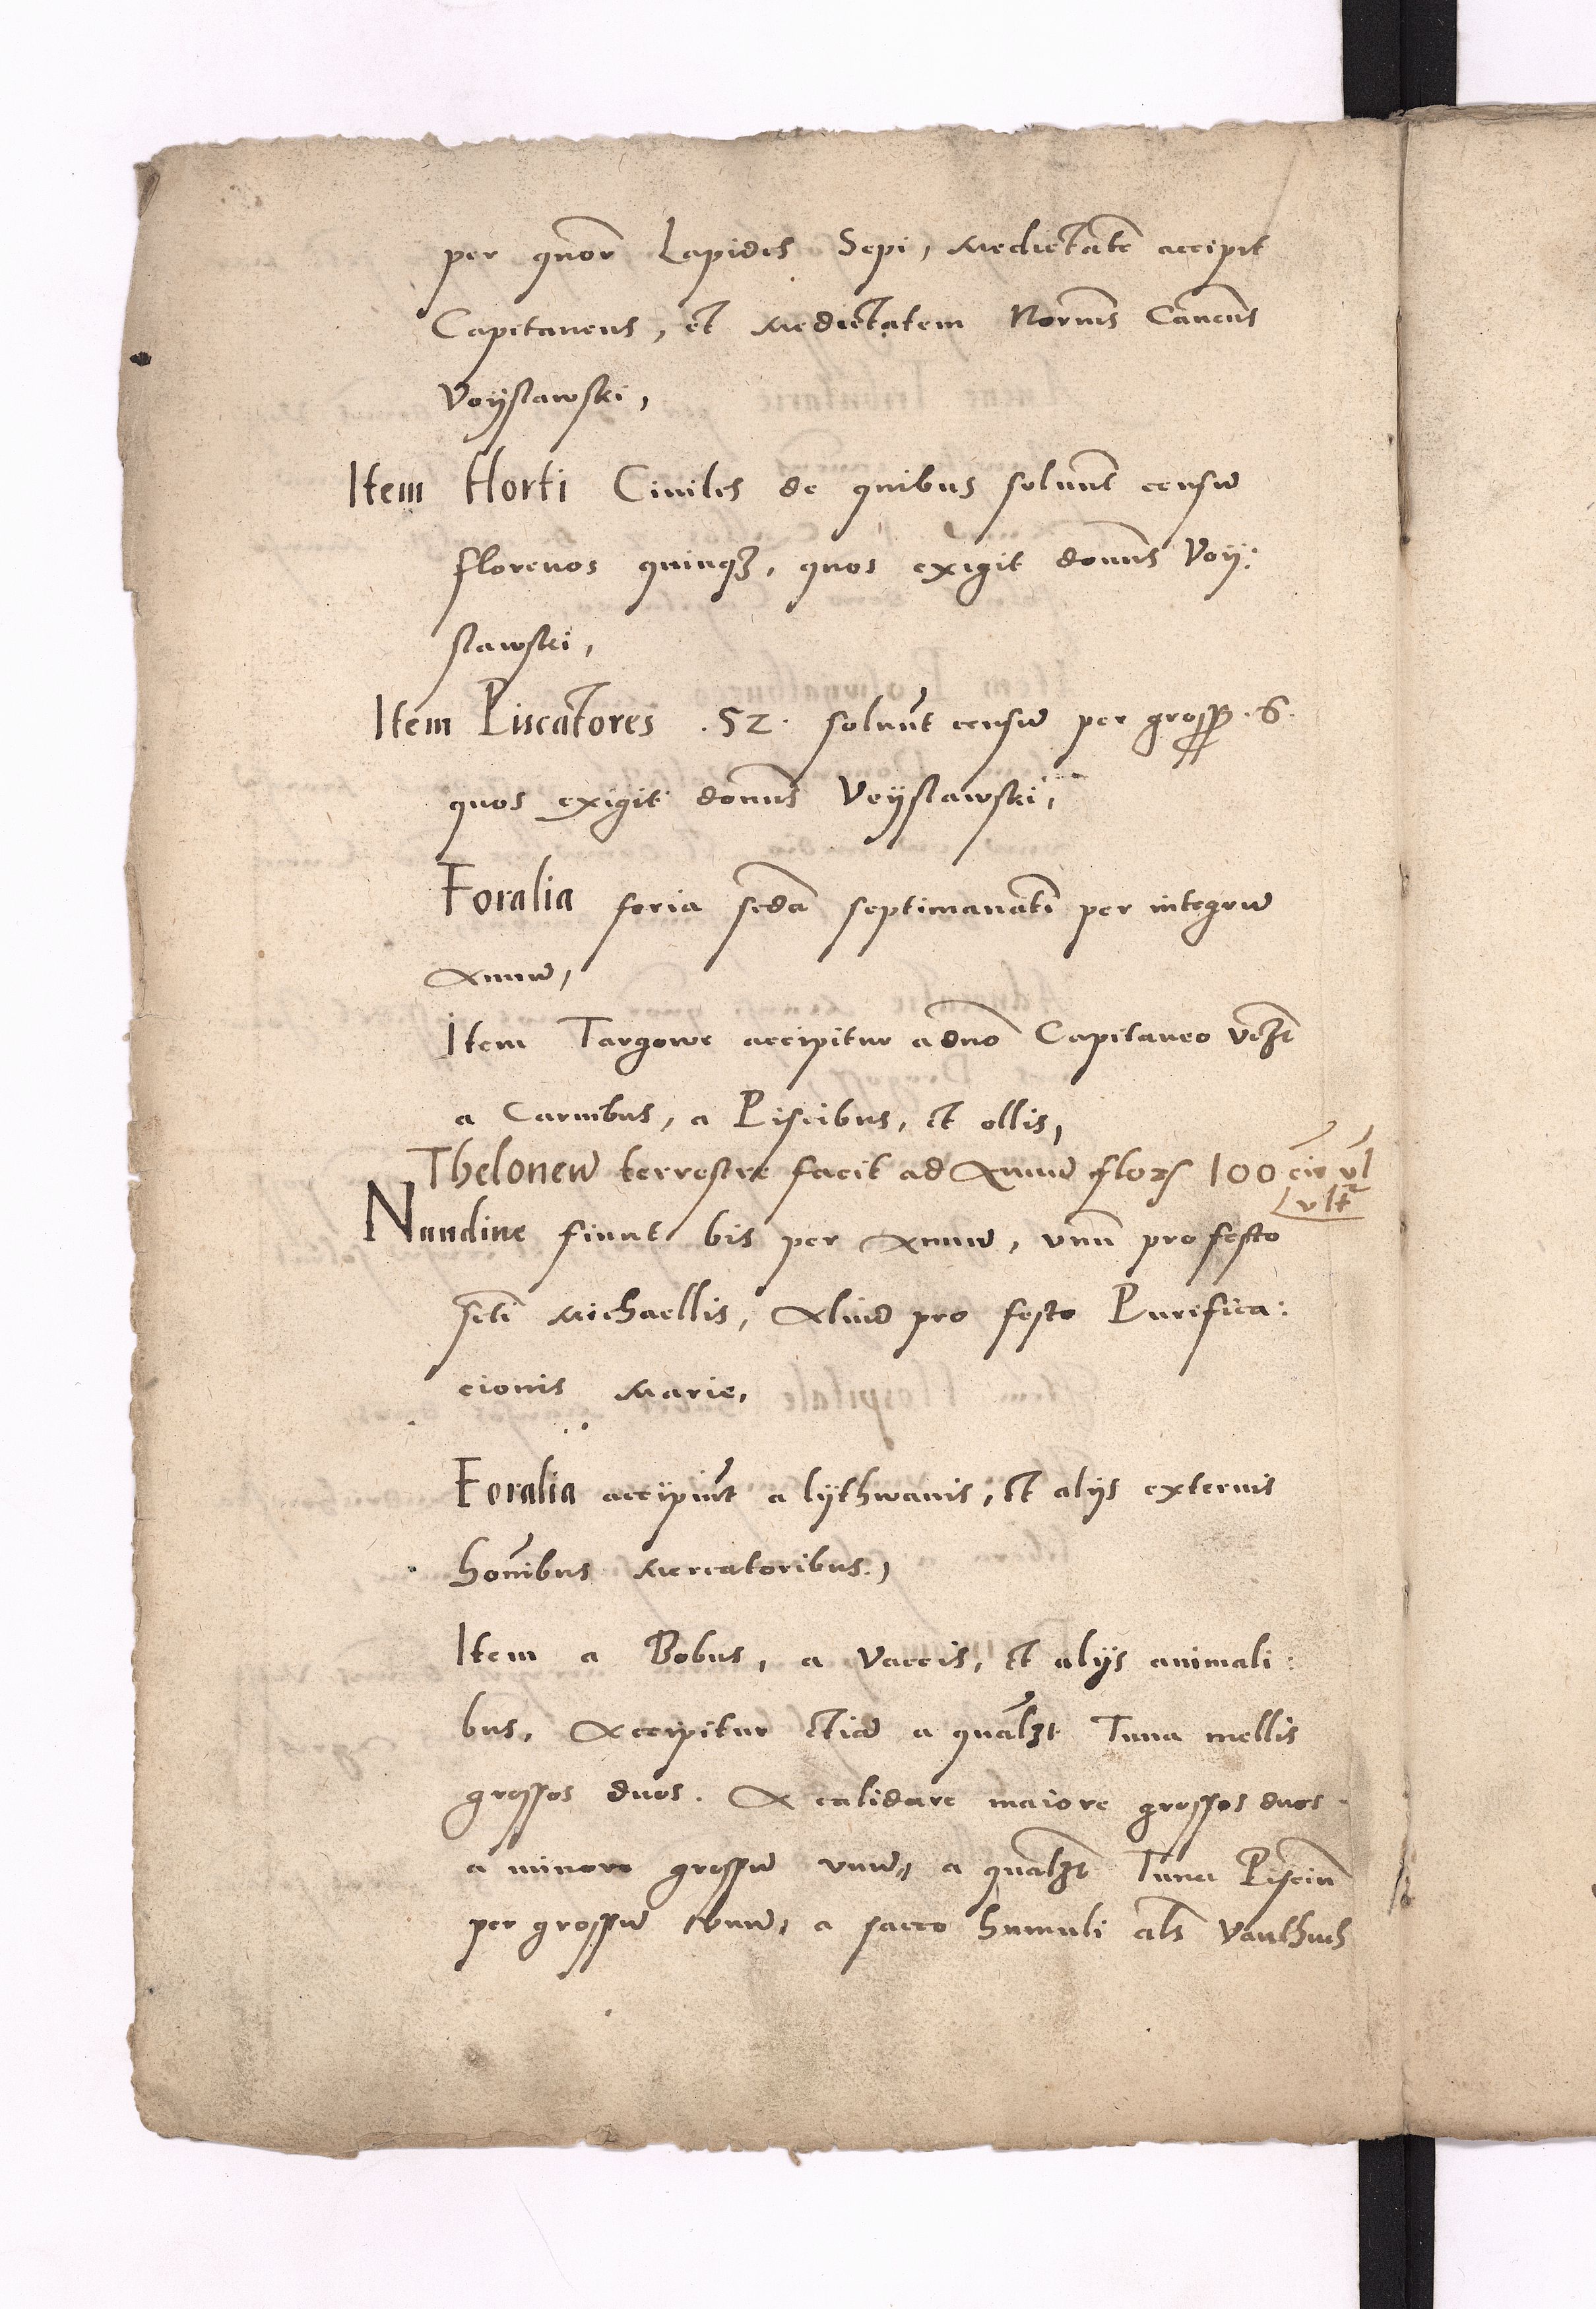 per quor Lapides Sepi, Medietate accipit
Capitaneus, et Medietatem
Voyslawski,
Item Horti Civiles de quibus solvunt censu
florenos quinq3, quos exigit domns Voy:
slawski,
Item Piscatores .52. solvut censu per gross .6.
quos exigit domns Voyslawski,
Foralia feria scda septimanati per integru
Annu,
Item Targowe accipitur a dno Capitaneo
a Carnibus, a Piscibus, et ollis,
Theloneu terrestre facit ad Annu flor 100 cir vl
vltr
Nundine fiunt bis per Annu, vnu pro festo
scti Michaellis, Aliud pro festo Purifica:
cionis Marie,
Foralia accipiut a lythwanis, et alijs externis
homibus Mercatoribus,
Item a Bobus, a Vaccis, et alijs animali:
bus, Accipitur etia a qual3t Tuna mellis
grossos duos. A calidare maiore grossos duos.
a minore grossu vnu, a qual3t Tuna Pisciu
per grossu vnu, a sacco humuli als Vanthuch